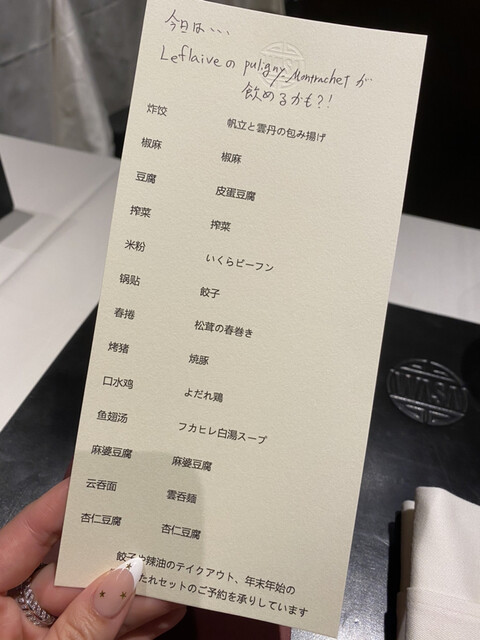 今日は、、、
Leflaiveの puligny Montrachetが
飲めるかも?!
炸饺 帆立と雲丹の包み揚げ
椒麻 椒麻
豆腐 皮蛋豆腐
搾菜 搾菜
米粉 いくらビーフン
锅贴 餃子
春捲 松茸の春巻き
烤猪 焼豚
口水鸡 よだれ鶏
鱼翅汤 フカヒレ白湯スープ
麻婆豆腐 麻婆豆腐
云吞面 雲吞麺
杏仁豆腐 杏仁豆腐
餃子や辣油のテイクアウト、年末年始の
たれセットのご予約を承りしています
WASA